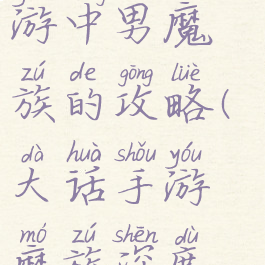 游中男魔
zú de gōng lüè
族的攻略(
dà huà shǒu yóu
大话手游
mó zú shēn dù
魔族深度